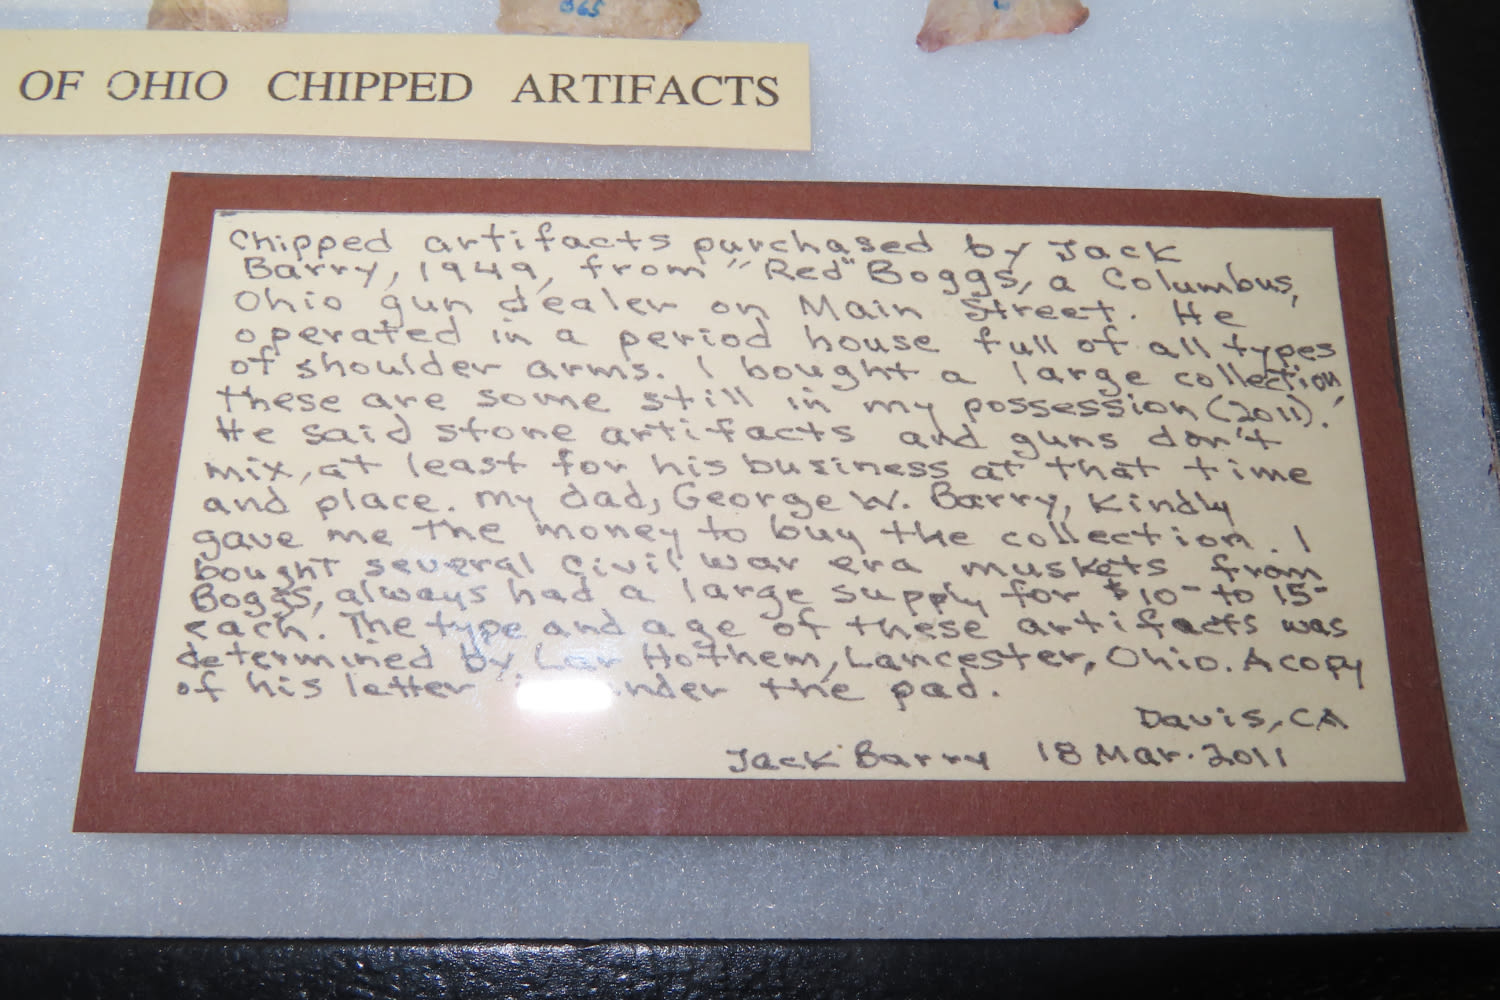 B65
OF OHIO CHIPPED ARTIFACTS
Chipped artifacts purchased by Jack
Barry, 1949, from "Red" Boggs, a Columbus,
Ohio gun dealer on Main Street. He
operated in a period house full of all types
of shoulder arms. I bought a large collection,
these are some still in my possession (2011).
He said stone artifacts and guns don't
mix, at least for his business at that time
and place. My dad, George W. Barry, kindly
gave me the money to buy the collection. I
bought several Civil War era muskets from
Boggs, always had a large supply for $10- to 15-
each. The type and age of these artifacts was
determined by Lar Hothem, Lancester, Ohio. A copy
of his letter under the pad.
Davis, CA
Jack Barry 18 Mar. 2011